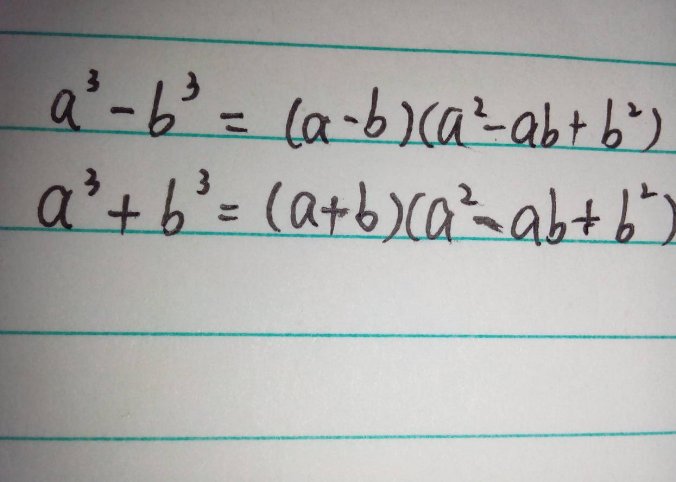 a³-b³ = (a-b)(a²-ab+b²)
a³+b³ = (a+b)(a²-ab+b²)